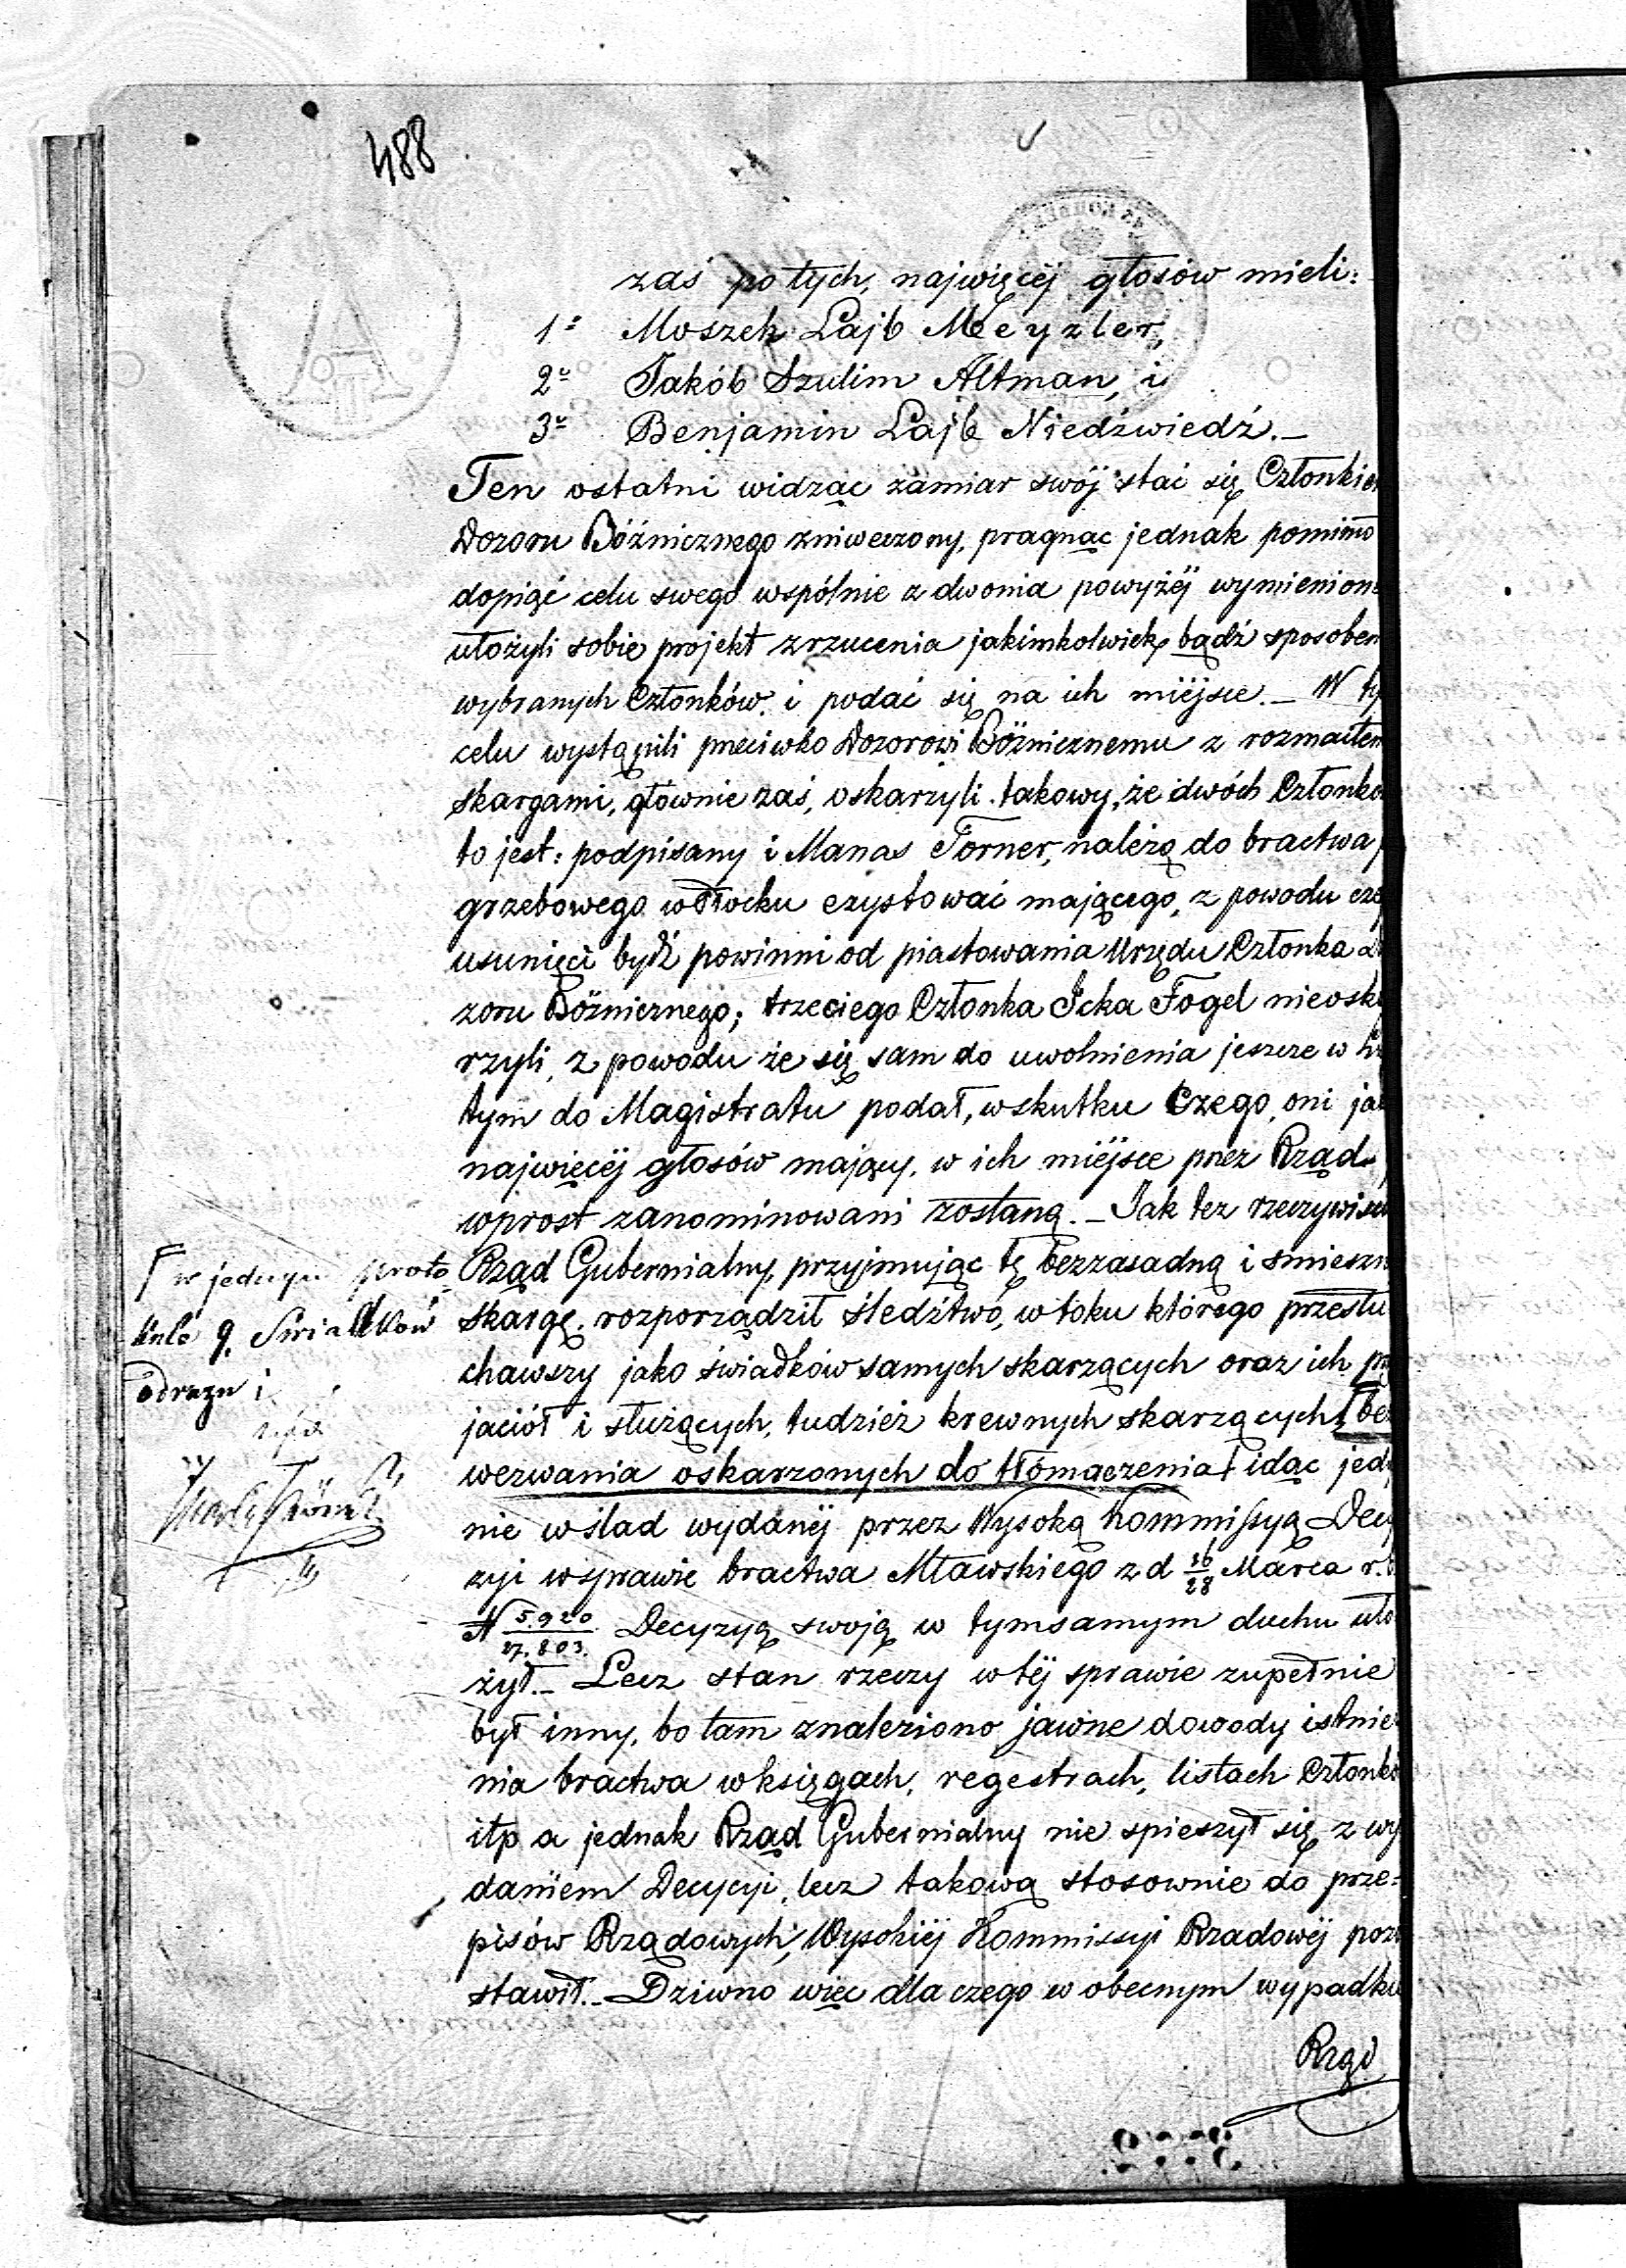 488
zaś po tych, najwięcéj głosów mieli:
1º Moszek Lajb Meyzler,
2º Jakób Szulim Altman, i
3º Benjamin Lajb Niedźwiedź._
Ten ostatni widząc zamiar swój stać się Członkie
Dozoru Bóżnicznego zniweczony, pragnąc jednak pomimo
dopiąć celu swego wspólnie z dwoma powyżéj wymienion
ułożyli sobie projekt zrzucenia jakimkolwiek bądź sposobem
wybranych Członków, i podać się na ich miéjsce._ W ty
celu wystąpili przeciwko Dozorowi Bóżnicznemu z rozmaitem
skargami, głównie zaś, oskarzyli takowy, że dwóch Członkó
to jest: podpisany i Manas Torner, należą do bractwa p
grzebowego w Płocku exystować mającego, z powodu cze
usunięci bydź powinni od piastowania Urzędu Członka D
zoru Bóżniczego; trzeciego Członka Icka Fogel nieoska
rzyli, z powodu że się sam do uwolnienia jeszcze w Lu
tym do Magistratu podał, wskutku Czego, oni jak
najwięcéj głosów mający, w ich miéjsce przez Rząd
wprost zanominowani zostaną._ Jak też rzeczywiści
Rząd Gubernialny, przyjmując tę bezzasadną i smieszn
skargę, rozporządził śledźtwo, w toku którego przesłu
chawszy jako świadków samych skarzących oraz ich prz
jaciół i służących, tudzież krewnych skarzących Γ bez
wezwania oskarzonych do tłómaczenia idąc jedy
nie w ślad wydanéj przez Wysoką Kommissyą Decy
zyi w sprawie bractwa Mławskiego z d 16/28 Marca r. b
N 5.920/27.803. Decyzyą swoją w tymsamym duchu uło
żył._ Lecz stan rzeczy w téj sprawie zupełnie
był inny, bo tam znaleziono jawne dowody istnie
nia bractwa w księgach, regestrach, listach Członkó
itp a jednak Rząd Gubernialny nie spieszył się z wy
daniem Decyzyi, lecz takową stosownie do prze=
pisów Rządowych, Wysokiéj Kommissyi Rządowéj pozo
stawił._ Dziwno więc dla czego w obecnym wypadku
Rząd
Γ w jednym proto
kule 9. Swiadków
odrazu i